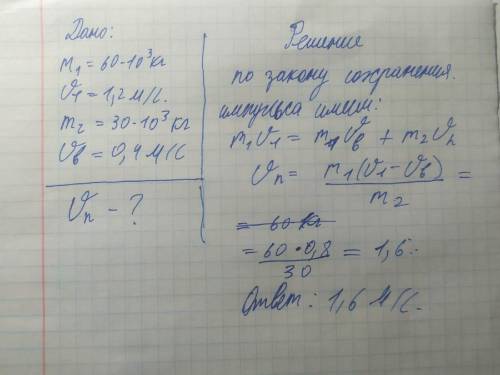 Дано:
m₁ = 60·10³ кг
υ₁ = 1,2 м/с.
m₂ = 30·10³ кг
υв = 0,4 м/с
υп - ?
Решение
по закону сохранения.
импульса имеем:
m₁υ₁ = m₁υв + m₂υп
υп = m₁(υ₁-υв) / m₂ =
= 60 кг
= 60·0,8 / 30 = 1,6.
Ответ: 1,6 м/с.